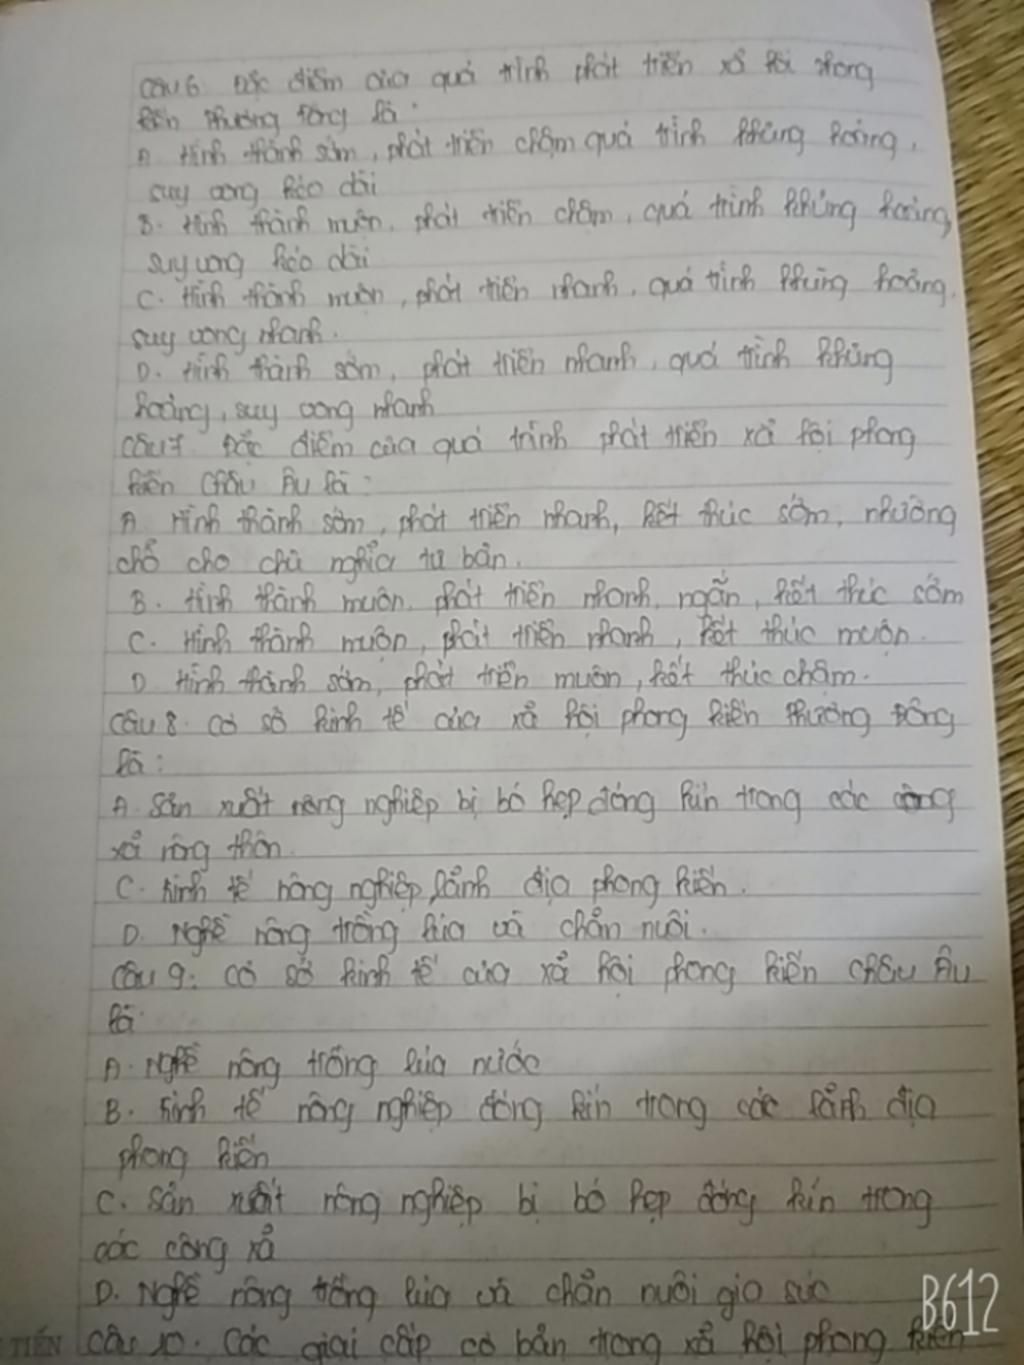 Câu 6. Đặc điểm của quá trình phát triển xã hội phong
kiến Phương Đông là:
A. Hình thành sớm, phát triển chậm quá trình khủng hoảng,
suy vong kéo dài
B. Hình thành muộn, phát triển chậm, quá trình khủng hoảng,
suy vong kéo dài
C. Hình thành muộn, phát triển nhanh, quá trình khủng hoảng,
suy vong nhanh.
D. Hình thành sớm, phát triển nhanh, quá trình khủng
hoảng, suy vong nhanh
Câu 7 Đặc điểm của quá trình phát triển xã hội phong
kiến Châu Âu là:
A. Hình thành sớm, phát triển nhanh, kết thúc sớm, nhường
chổ cho chủ nghĩa tư bản.
B. Hình thành muộn, phát triển nhanh, ngắn, kết thúc sớm
C. Hình thành muộn, phát triển nhanh, kết thúc muộn.
D. Hình thành sớm, phát triển muộn, kết thúc chậm.
Câu 8. Cơ sở kinh tế của xã hội phong kiến Phương Đông
là:
A. Sản xuất nông nghiệp bị bó hẹp đóng kín trong các công
xã nông thôn.
C. Kinh tế nông nghiệp lảnh địa phong kiến.
D. Nghề nông trồng lúa và chăn nuôi.
Câu 9: Cơ sở kinh tế của xã hội phong kiến Châu Âu
là:
A. Nghề nông trồng lúa nước
B. Kinh tế nông nghiệp đóng kín trong các lảnh địa
phong kiến
C. Sản xuất nông nghiệp bị bó hẹp đóng kín trong
các công xã
D. Nghề nông trồng lúa và chăn nuôi gia súc
TIẾN Câu 10. Các giai cấp cơ bản trong xã hội phong kiến
B612